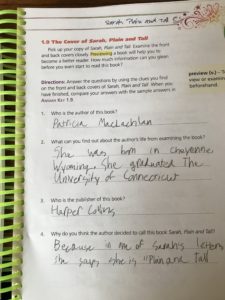 Sarah, Plain and Tall
1.9 The Cover of Sarah, Plain and Tall
Pick up your copy of Sarah, Plain and Tall. Examine the front
and back covers closely. Previewing a book will help you to
become a better reader. How much information can you glean
before you even start to read this book?
Directions: Answer the questions by using the clues you find
on the front and back covers of Sarah, Plain and Tall. When you
have finished, compare your answers with the sample answers in
Answer Key 1.9.
preview (v.) – T
view or examin
beforehand
1. Who is the author of this book?
Patricia MacLachlan
2. What can you find out about the author's life from examining the book?
She was born in Cheyenne
Wyoming. She graduated The
University of Connecticut
3. Who is the publisher of this book?
Harper Collins
4. Why do you think the author decided to call this book Sarah, Plain and Tall?
Because in one of Sarah's letters
She says she is "Plain and Tall